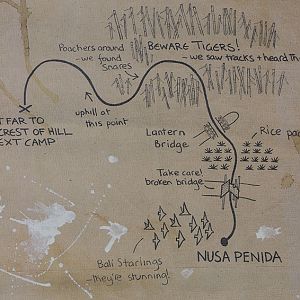 Poachers around
BEWARE TIGERS!
- we found
Snares
- we saw tracks + heard
T FAR TO
CREST OF HILL
EXT CAMP
uphill at
this point
Lantern
Bridge
Rice
Take care!
broken bridge
Bali Starlings
- they're stunning!
NUSA PENIDA